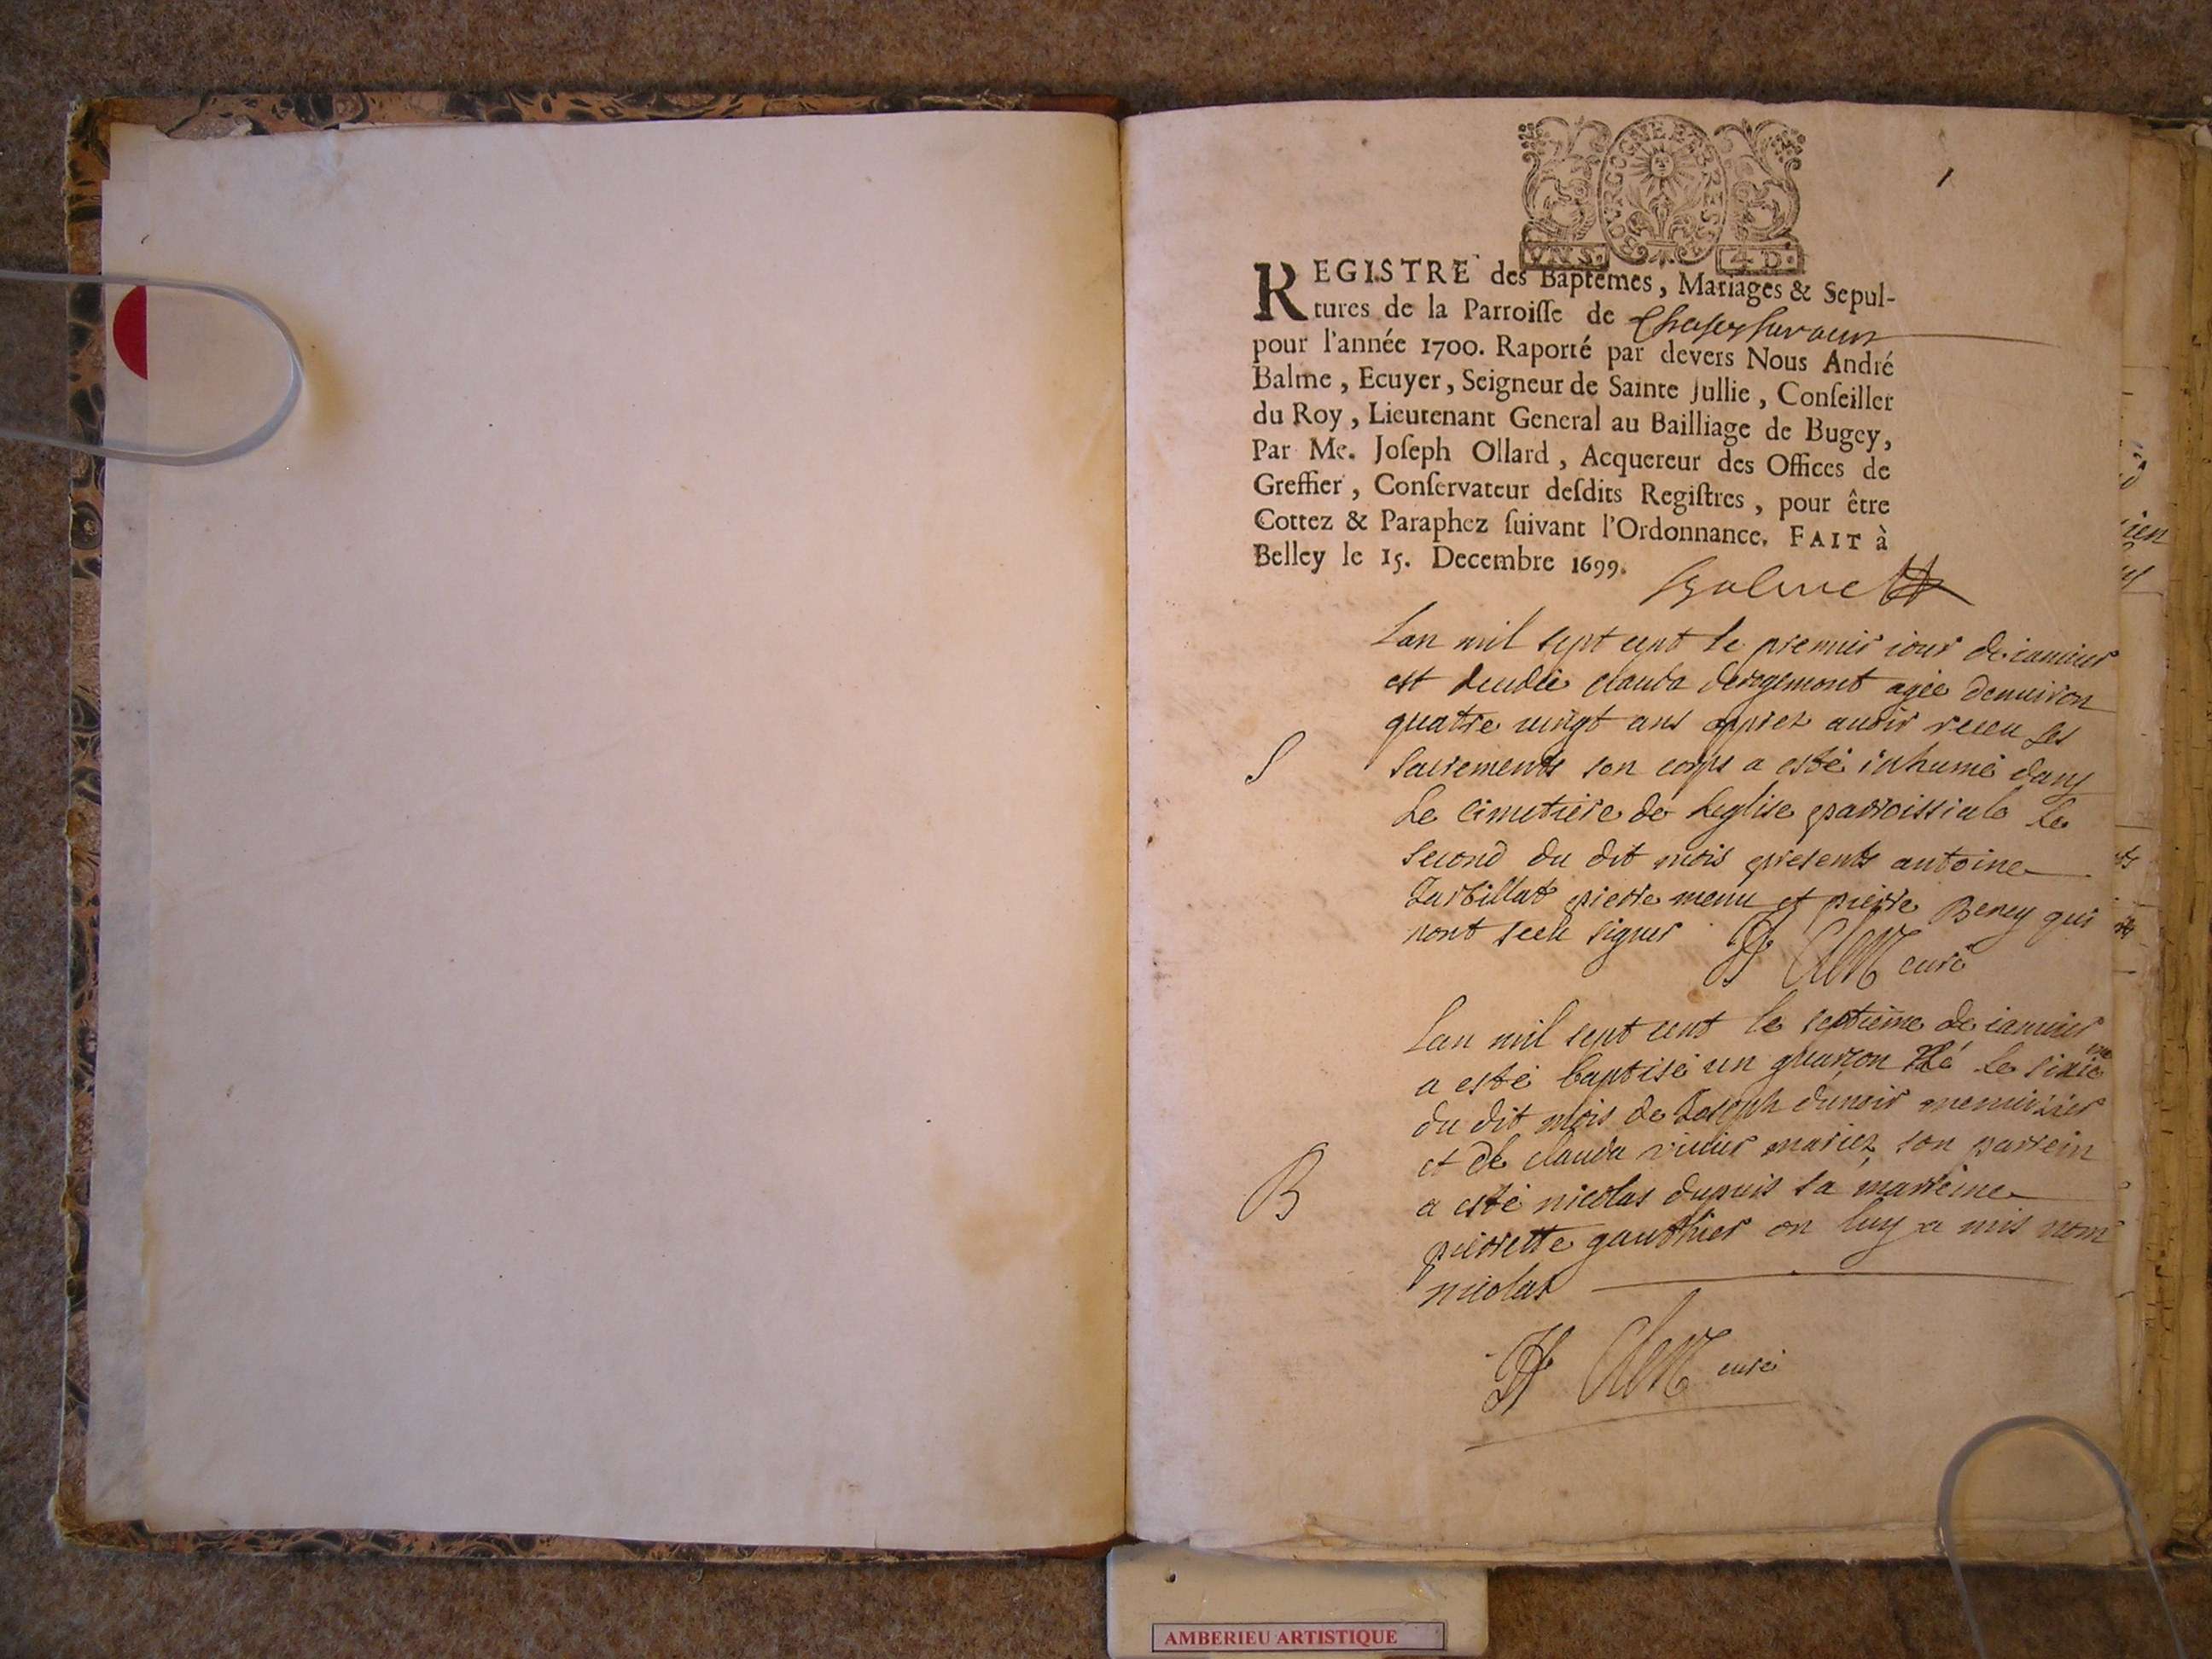 BOVRGOGNE ET BRESSE
VN S. 4 D.
1
REGISTRE des Baptêmes, Mariages & Sepul-
tures de la Parroisse de
pour l'année 1700. Raporté par devers Nous André
Balme, Ecuyer, Seigneur de Sainte Jullie, Conseiller
du Roy, Lieutenant General au Bailliage de Bugey,
Par Me. Joseph Ollard, Acquereur des Offices de
Greffier, Conservateur desdits Registres, pour être
Cottez & Paraphez suivant l'Ordonnance. FAIT à
Belley le 15. Decembre 1699.
Balme
Lan mil sept cent le premier iour de ianuier
est decedée clauda derogemont agée denuiron
quatre uingt ans apprez auoir receu les
S
sacrements son corps a esté inhumé dans
le cimetiere de leglise parroissiale le
second du dit mois presents antoine
Tarbillat pierre menu et pierre Beney qui
nont sceu signer curé
Lan mil sept cent le septieme de ianuier
a esté baptisé un guarson né le sixieme
du dit mois de Joseph dunoir menuizier
et de clauda viuier mariez, son parrein
B
a esté nicolas dupuis sa marreine
pierrette gauthier on luy a mis nom
nicolas
curé
AMBERIEU ARTISTIQUE